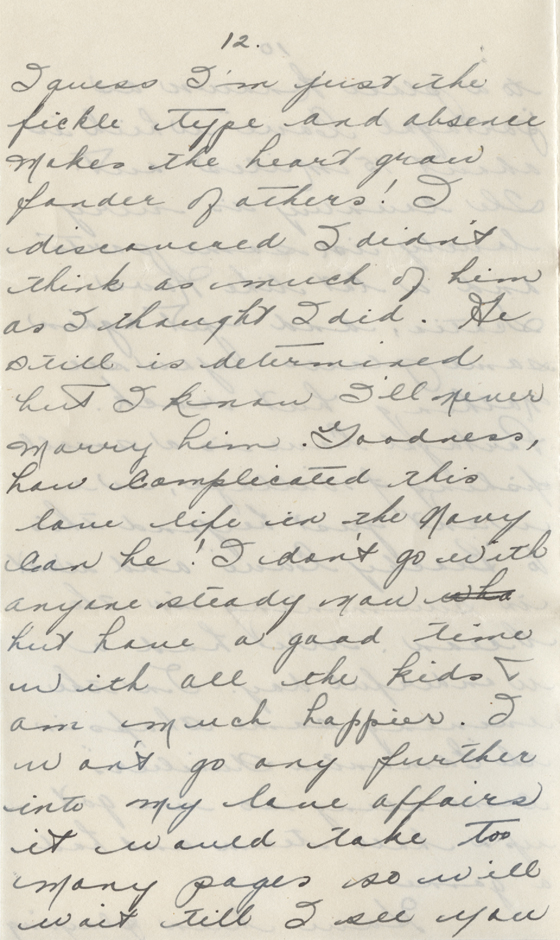 12.
I guess I'm just the
fickle type and absence
makes the heart grow
fonder of others! I
discovered I didn't
think as much of him
as I thought I did. He
still is determined
but I know I'll never
marry him. Goodness,
how complicated this
love life in the Navy
can be! I don't go with
anyone steady now who
but have a good time
with all the kids &
am much happier. I
won't go any further
into my love affairs
it would take too
many pages so will
wait till I see you